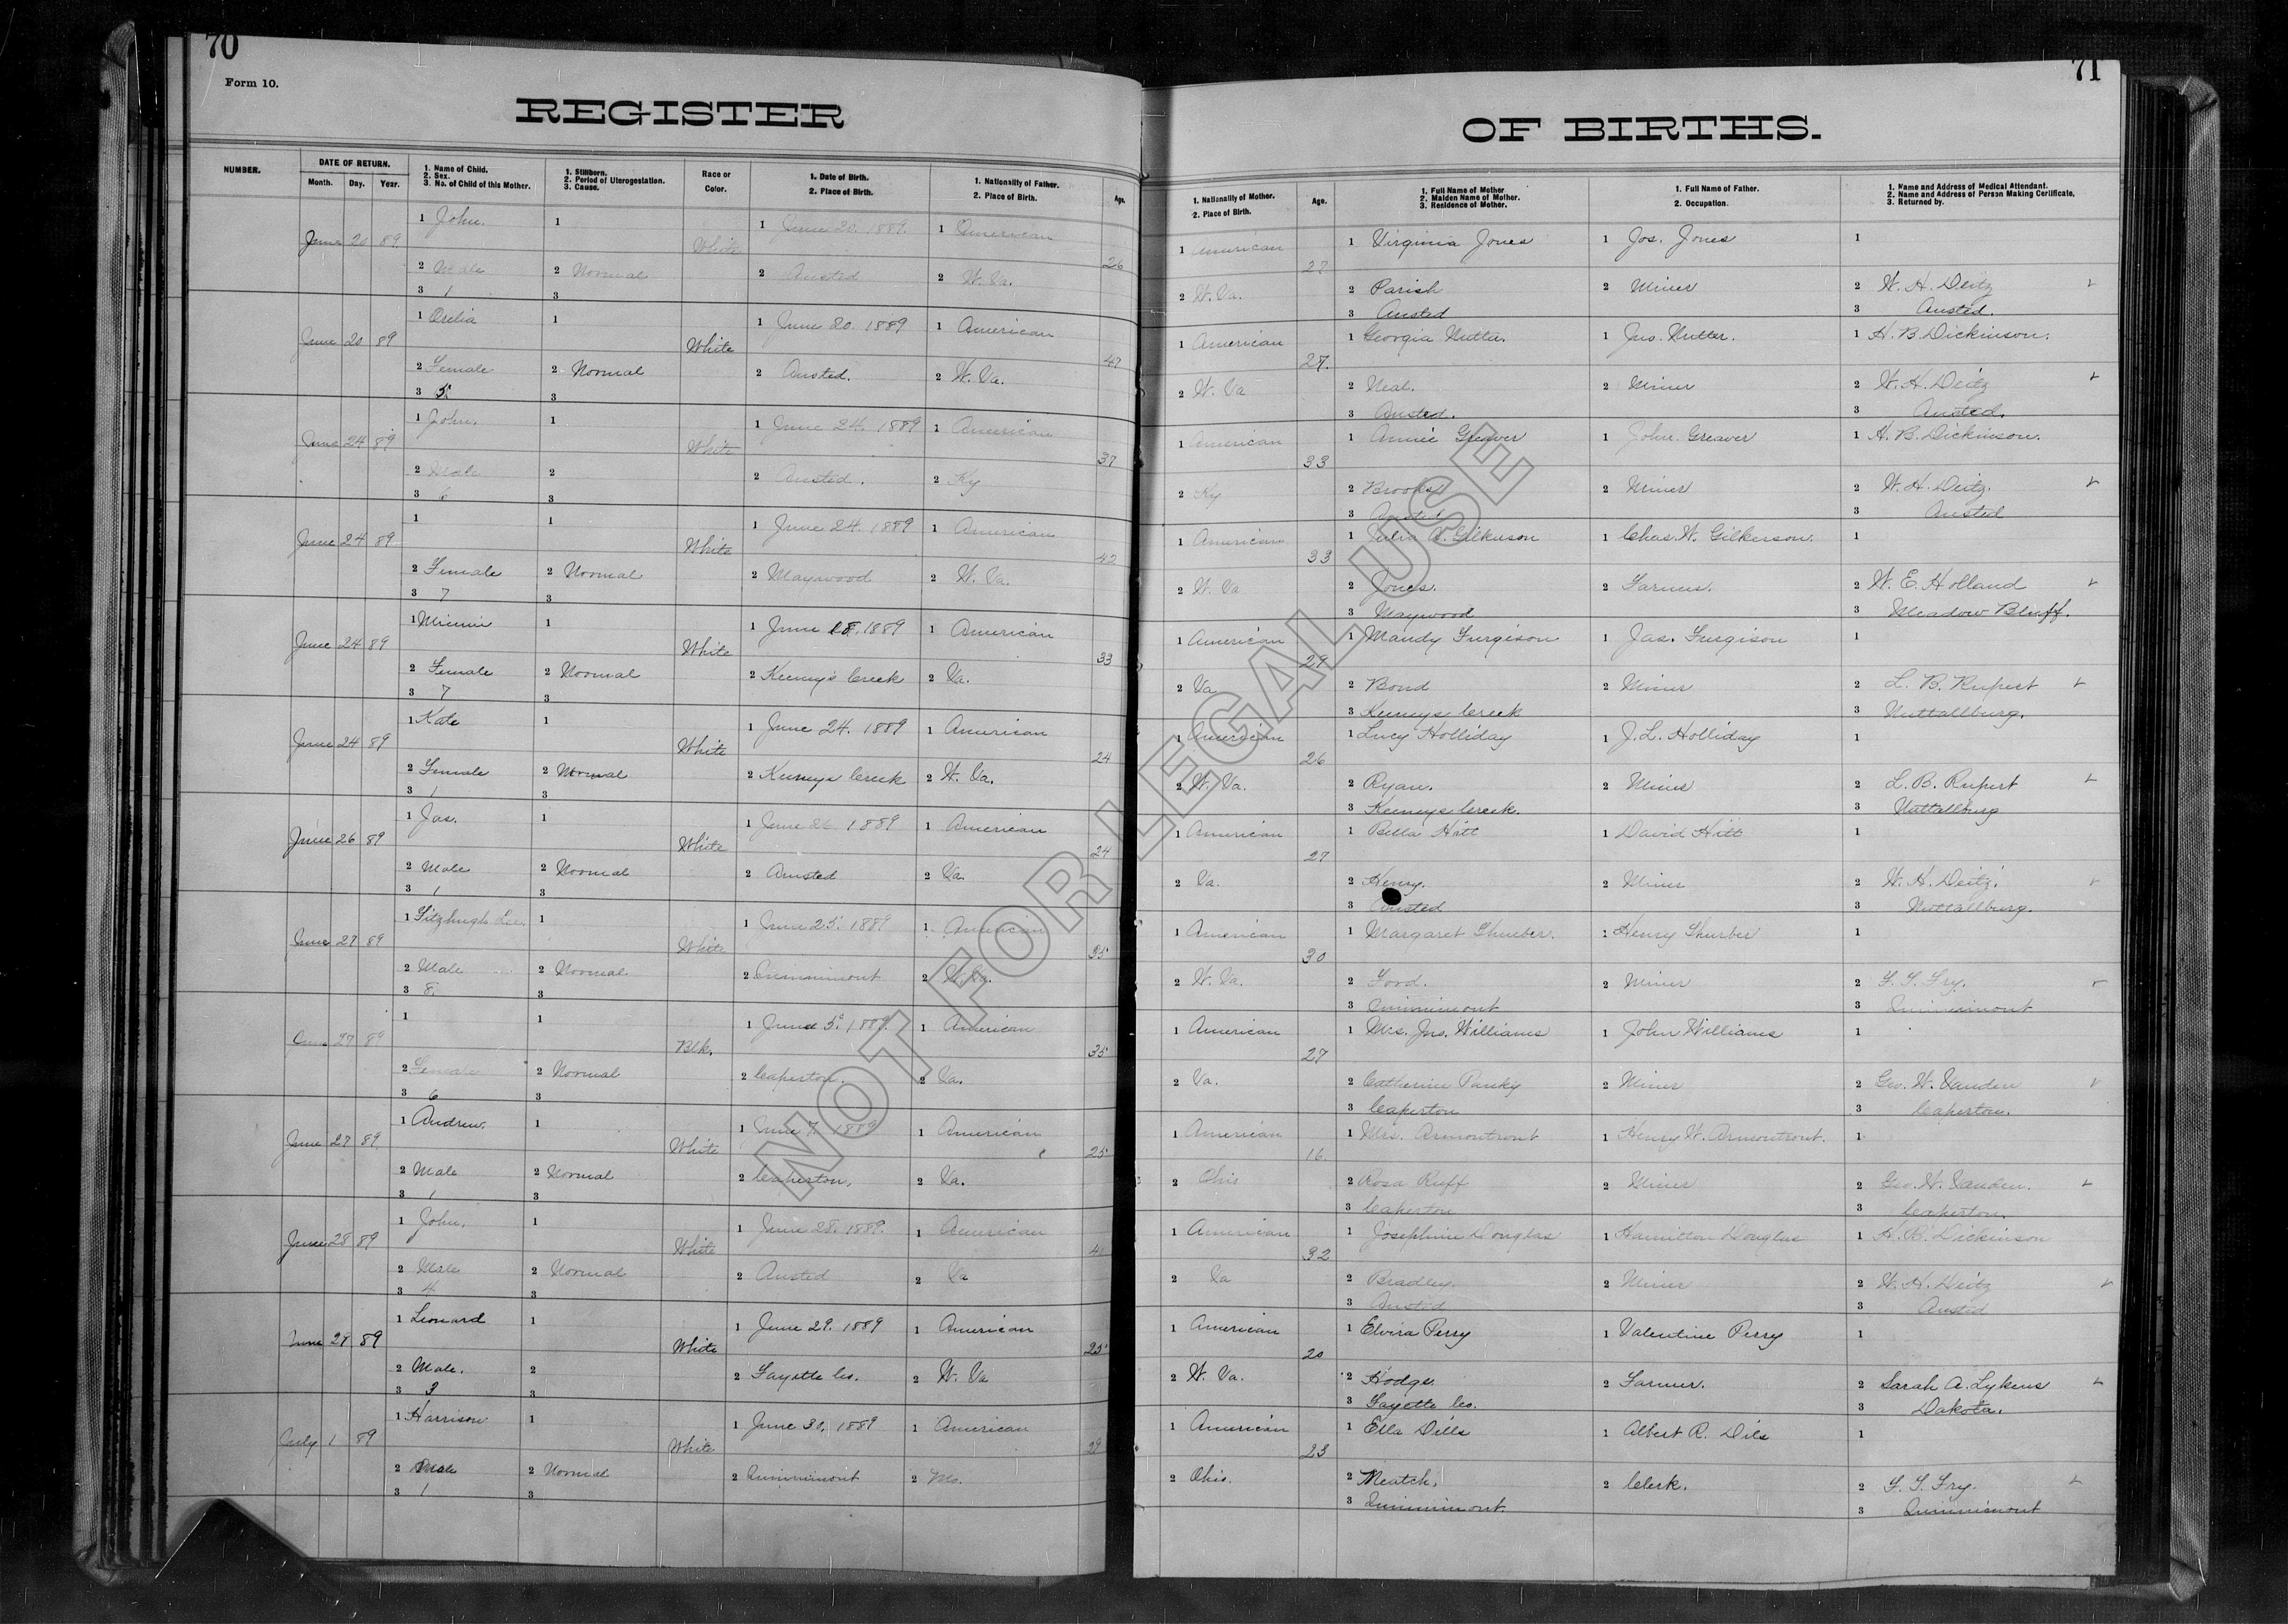 70
Form 10.
REGISTER
71
OF BIRTHS.
NUMBER.
DATE OF RETURN.
Month. Day. Year.
1. Name of Child.
2. Sex.
3. No. of Child of this Mother.
1. Stillborn.
2. Period of Uterogestation.
3. Cause.
Race or
Color.
1. Date of Birth.
2. Place of Birth.
1. Nationality of Father.
2. Place of Birth.
Age.
1. Nationality of Mother.
2. Place of Birth.
Age.
1. Full Name of Mother
2. Maiden Name of Mother.
3. Residence of Mother.
1. Full Name of Father.
2. Occupation.
1. Name and Address of Medical Attendant.
2. Name and Address of Person Making Certificate.
3. Returned by.
June 20 89 1 John. 1 White 1 June 20. 1889. 1 American 26 1 American 27 1 Virginia Jones 1 Jos. Jones 1
2 Male 2 Normal 2 Ansted 2 W. Va. 2 W. Va. 2 Parish 2 Miner 2 W. H. Deitz
3 1 3 3 Ansted 3 Ansted.
June 20 89 1 Orelia 1 White 1 June 20. 1889 1 American 47 1 American 27. 1 Georgia Nutter. 1 Jno. Nutter. 1 H. B. Dickinson.
2 Female 2 Normal 2 Ansted. 2 W. Va. 2 W. Va 2 Neal. 2 Miner 2 W. H. Deitz
3 5. 3 3 Ansted. 3 Ansted.
June 24 89 1 John. 1 White 1 June 24. 1889 1 American 37 1 American 33 1 Annie Greaver 1 John Greaver 1 H. B. Dickinson.
2 Male 2 2 Ansted. 2 Ky 2 Ky 2 Brooks 2 Miner 2 W. H. Deitz.
3 6 3 3 Ansted 3 Ansted
June 24 89 1 1 White 1 June 24. 1889 1 American 42 1 American 33 1 Julia A. Gilkerson 1 Chas. W. Gilkerson. 1
2 Female 2 Normal 2 Maywood 2 W. Va. 2 W. Va 2 Jones. 2 Farmer. 2 W. E. Holland
3 7 3 3 Maywood 3 Meadow Bluff.
June 24 89 1 Minnie 1 White 1 June 18. 1889 1 American 33 1 American 29 1 Mandy Furgison 1 Jas. Furgison 1
2 Female 2 Normal 2 Keeneys Creek 2 Va. 2 Va 2 Bond 2 Miner 2 L. B. Rupert
3 7 3 3 Keeneys Creek 3 Nuttallburg.
June 24 89 1 Kate 1 White 1 June 24. 1889 1 American 24 1 American 26 1 Lucy Holliday 1 J. L. Holliday 1
2 Female 2 Normal 2 Keeneys Creek 2 W. Va. 2 W. Va. 2 Ryan. 2 Miner 2 L. B. Rupert
3 1 3 3 Keeneys Creek. 3 Nuttallburg
June 26 89 1 Jas. 1 White 1 June 26. 1889 1 American 24 1 American 27 1 Bella Hitt 1 David Hitt 1
2 Male 2 Normal 2 Ansted 2 Va. 2 Va. 2 Henry. 2 Miner 2 W. H. Deitz.
3 1 3 3 Ansted 3 Nuttallburg.
June 27 89 1 Fitzhugh Lee. 1 White 1 June 25. 1889 1 American 35 1 American 30 1 Margaret Thurber. 1 Henry Thurber 1
2 Male 2 Normal 2 Quinnimont 2 W. Va. 2 W. Va. 2 Ford. 2 Miner 2 F. T. Fry.
3 8. 3 3 Quinnimont 3 Quinnimont
June 27 89 1 1 Blk. 1 June 5. 1889. 1 American 35 1 American 27 1 Mrs. Jno. Williams 1 John Williams 1
2 Female 2 Normal 2 Caperton. 2 Va. 2 Va. 2 Catherine Panky 2 Miner 2 Geo. W. Vanden
3 6 3 3 Caperton 3 Caperton.
June 27 89 1 Andrew. 1 White 1 June 7. 1889 1 American 25 1 American 16 1 Mrs. Armontrout 1 Henry W. Armontrout. 1
2 Male 2 Normal 2 Caperton, 2 Va. 2 Ohio 2 Rosa Ruff 2 Miner 2 Geo. W. Vanden.
3 1 3 3 Caperton 3 Caperton.
June 28 89 1 John. 1 White 1 June 28. 1889. 1 American 41 1 American 32 1 Josephine Douglas 1 Hamilton Douglas 1 H. B. Dickinson
2 Male 2 Normal 2 Ansted 2 Va 2 Va 2 Bradley. 2 Miner 2 W. H. Deitz
3 4 3 3 Ansted 3 Ansted
June 29 89 1 Leonard 1 White 1 June 29. 1889 1 American 25 1 American 20 1 Elvira Perry 1 Valentine Perry 1
2 Male. 2 2 Fayette Co. 2 W. Va 2 W. Va. 2 Hodge. 2 Farmer. 2 Sarah A. Lykens
3 3 3 3 Fayette Co. 3 Dakota.
July 1 89 1 Harrison 1 White 1 June 30, 1889 1 American 29 1 American 23 1 Ella Dills 1 Albert R. Dils 1
2 Male 2 Normal 2 Quinnimont 2 Mo. 2 Ohio. 2 Meatch. 2 Clerk. 2 F. T. Fry.
3 1 3 3 Quinnimont. 3 Quinnimont
NOT FOR LEGAL USE